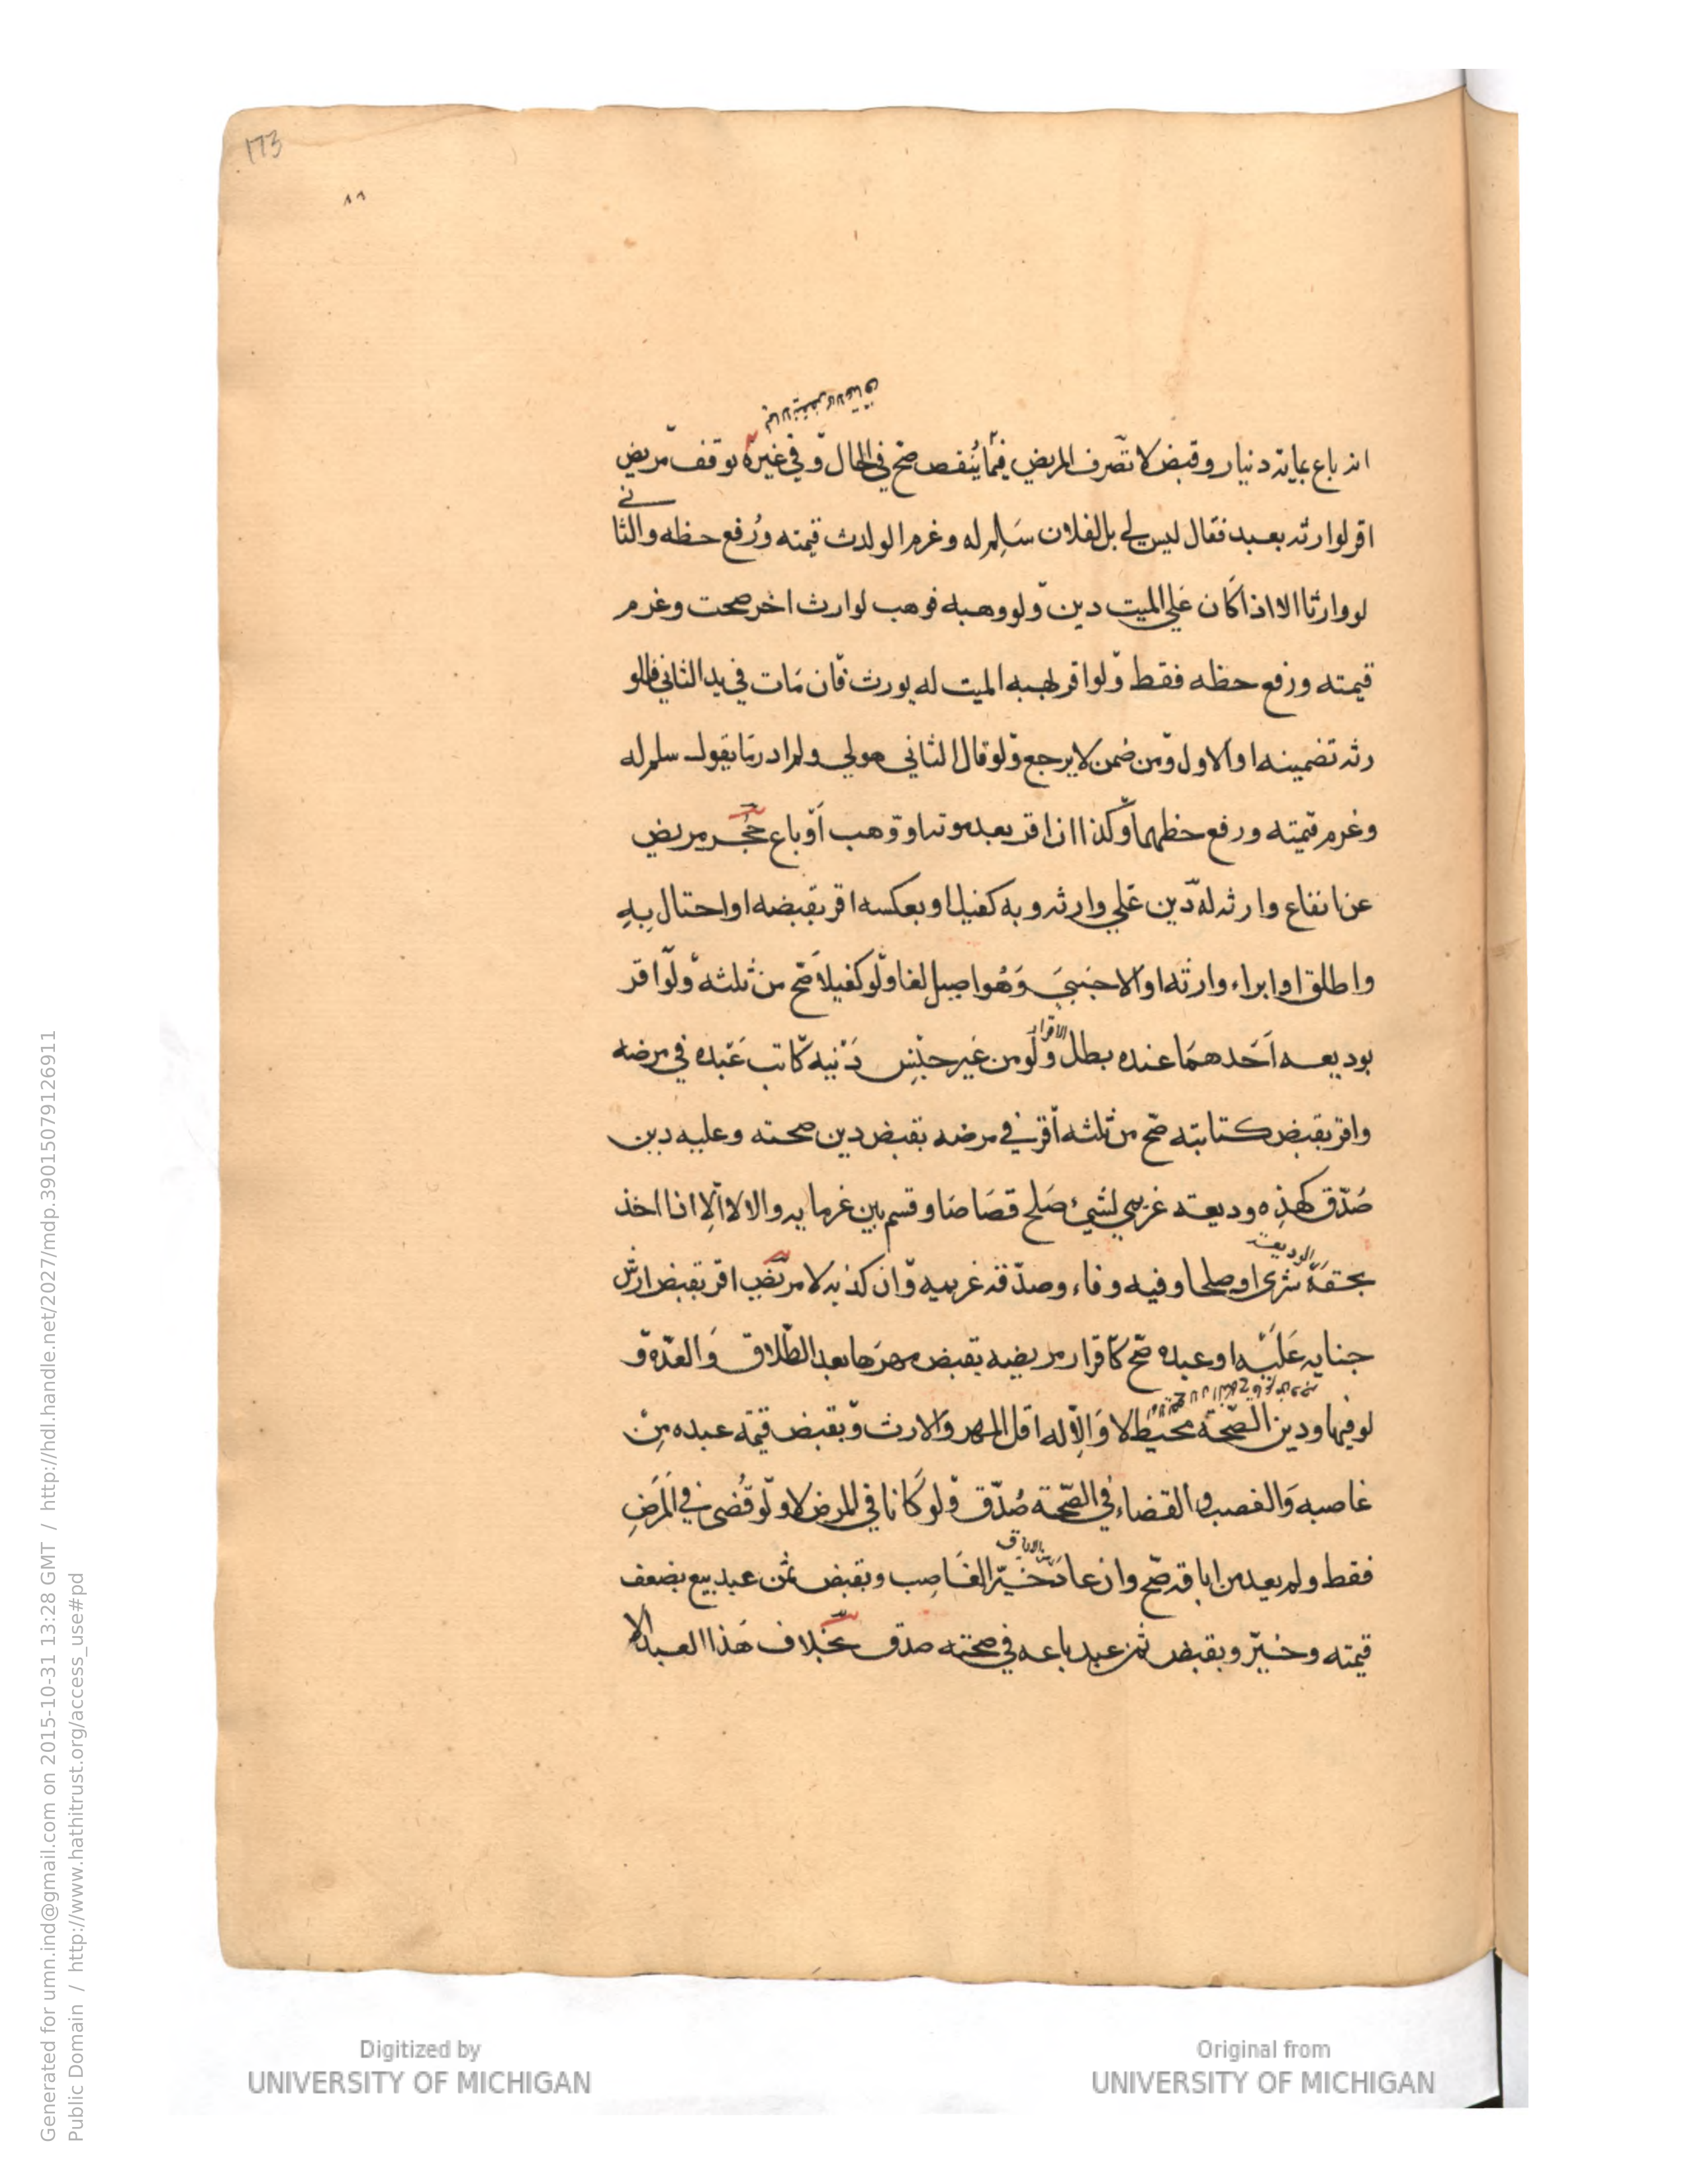 173
٨٦
انه باع بماية دنيار وقبض لا تصرف المريض فيما ينقض صح في الحال وفي غيره توقف مريض
اقر لوارثه بعبد فقال ليس لي بل لفلان سلم له وغرم الوارث قيمته ورفع حظه والثاني
لو وارثا الا اذا كان علي الميت دين ولو وهبه فوهب لوارث اخر صحت وغرم
قيمته ورفع حظه فقط ولو اقر بهبه الميت له يورث فان مات في يد الثاني فللو
رثه تضمينه او الاول ومن ضمن لا يرجع ولو قال الثاني هو لي ولم ادر ما يقول سلم له
وغرم قيمته ورفع حظهما وكذا ان اقر بعد موته او وهب او باع حجر مريض
عن انفاع وارثه له دين علي وارثه وبه كفيل او بعكسه اقر بقبضه او احتال به
واطلق او ابراء وارثه او الاجنبي وهو اصيل لغا ولو كفيلا صح من ثلثه ولو اقر
بوديعه احدهما عنده بطل الاقرار ولو من غير جنس دنيه كاتب عبده في مرضه
واقر بقبض كتابته صح من ثلثه اقر في مرضه بقبض دين صحته وعليه دين
صدق كهذه وديعته غريمي لشيء صلح قصاصا وقسم بين غرمايه والا لا الا انا اخذ
بحقه الوديعة شرى او صلحا وفيه وفاء وصدقه غريمه وان كذبه لا مريض اقر بقبض ارش
جنايه عليه او عبده صح كاقرار مريضه بقبض مهرها بعد الطلاق والعدة و
لو فيها ودين الصحة محيط لا والا له اقل المهر والارث وبقبض قيمة عبده من
غاصبه والغصب والقضاء في الصحة صدق ولو كانا في المرض لا ولو قضى في المرض
فقط ولم يعد من اباقه صح وان عاد من الاباق خير الغاصب وبقبض ثمن عبد بيع بضعف
قيمته وخير وبقبض ثمن عبد باعه في صحته صدق بخلاف هذا العبد الا
Digitized by
UNIVERSITY OF MICHIGAN
Original from
UNIVERSITY OF MICHIGAN
Generated for umn.ind@gmail.com on 2015-10-31 13:28 GMT / http://hdl.handle.net/2027/mdp.39015079126911
Public Domain / http://www.hathitrust.org/access_use#pd